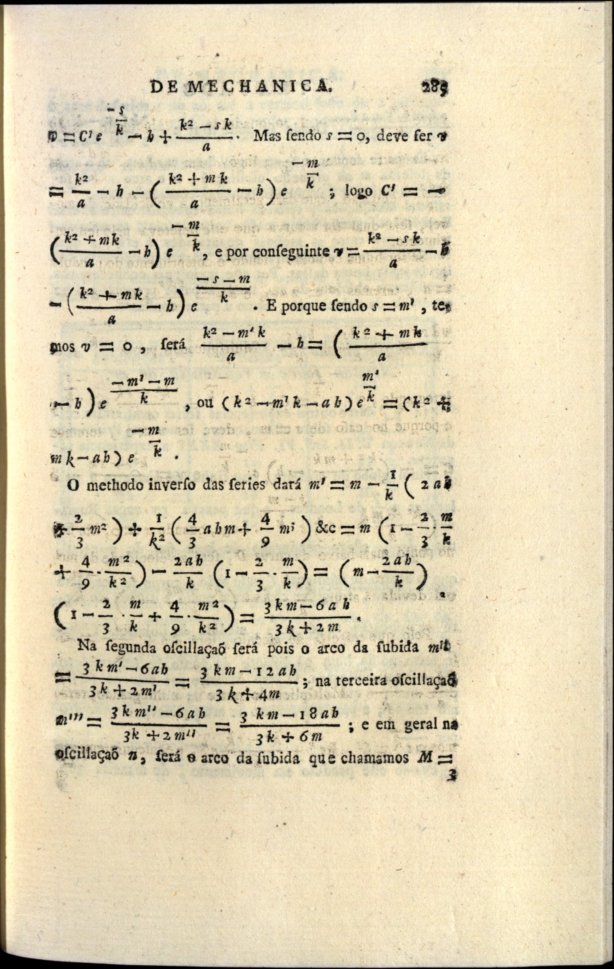 DE MECHANICA. 285
v = C' e^{-s/k} - b + \frac{k² - sk}{a}. Mas ſendo s = 0, deve ſer v
= \frac{k²}{a} - b - (\frac{k² + mk}{a} - b) e^{-m/k} ; logo C' = -
(\frac{k² + mk}{a} - b) e^{-m/k}, e por conſeguinte v = \frac{k² - sk}{a} - b
- (\frac{k² + mk}{a} - b) e^{\frac{-s-m}{k}}. E porque ſendo s = m', te-
mos v = 0, ſerá \frac{k² - m'k}{a} - b = (\frac{k² + mk}{a}
- b) e^{\frac{-m'-m}{k}}, ou (k² - m'k - ab) e^{m'/k} = (k² +
mk - ab) e^{-m/k}.
O methodo inverſo das ſeries dará m' = m - \frac{1}{k} (2ab
+ \frac{2}{3} m²) + \frac{1}{k²} (\frac{4}{3} abm + \frac{4}{9} m³) &c = m (1 - \frac{2}{3} . \frac{m}{k}
+ \frac{4}{9} . \frac{m²}{k²}) - \frac{2ab}{k} (1 - \frac{2}{3} . \frac{m}{k}) = (m - \frac{2ab}{k})
(1 - \frac{2}{3} . \frac{m}{k} + \frac{4}{9} . \frac{m²}{k²}) = \frac{3km - 6ab}{3k + 2m}.
Na ſegunda oſcillaçaõ ſerá pois o arco da ſubida m''
= \frac{3km' - 6ab}{3k + 2m'} = \frac{3km - 12ab}{3k + 4m} ; na terceira oſcillaçaõ
m''' = \frac{3km'' - 6ab}{3k + 2m''} = \frac{3km - 18ab}{3k + 6m} ; e em geral na
oſcillaçaõ n, ſerá o arco da ſubida que chamamos M =
3